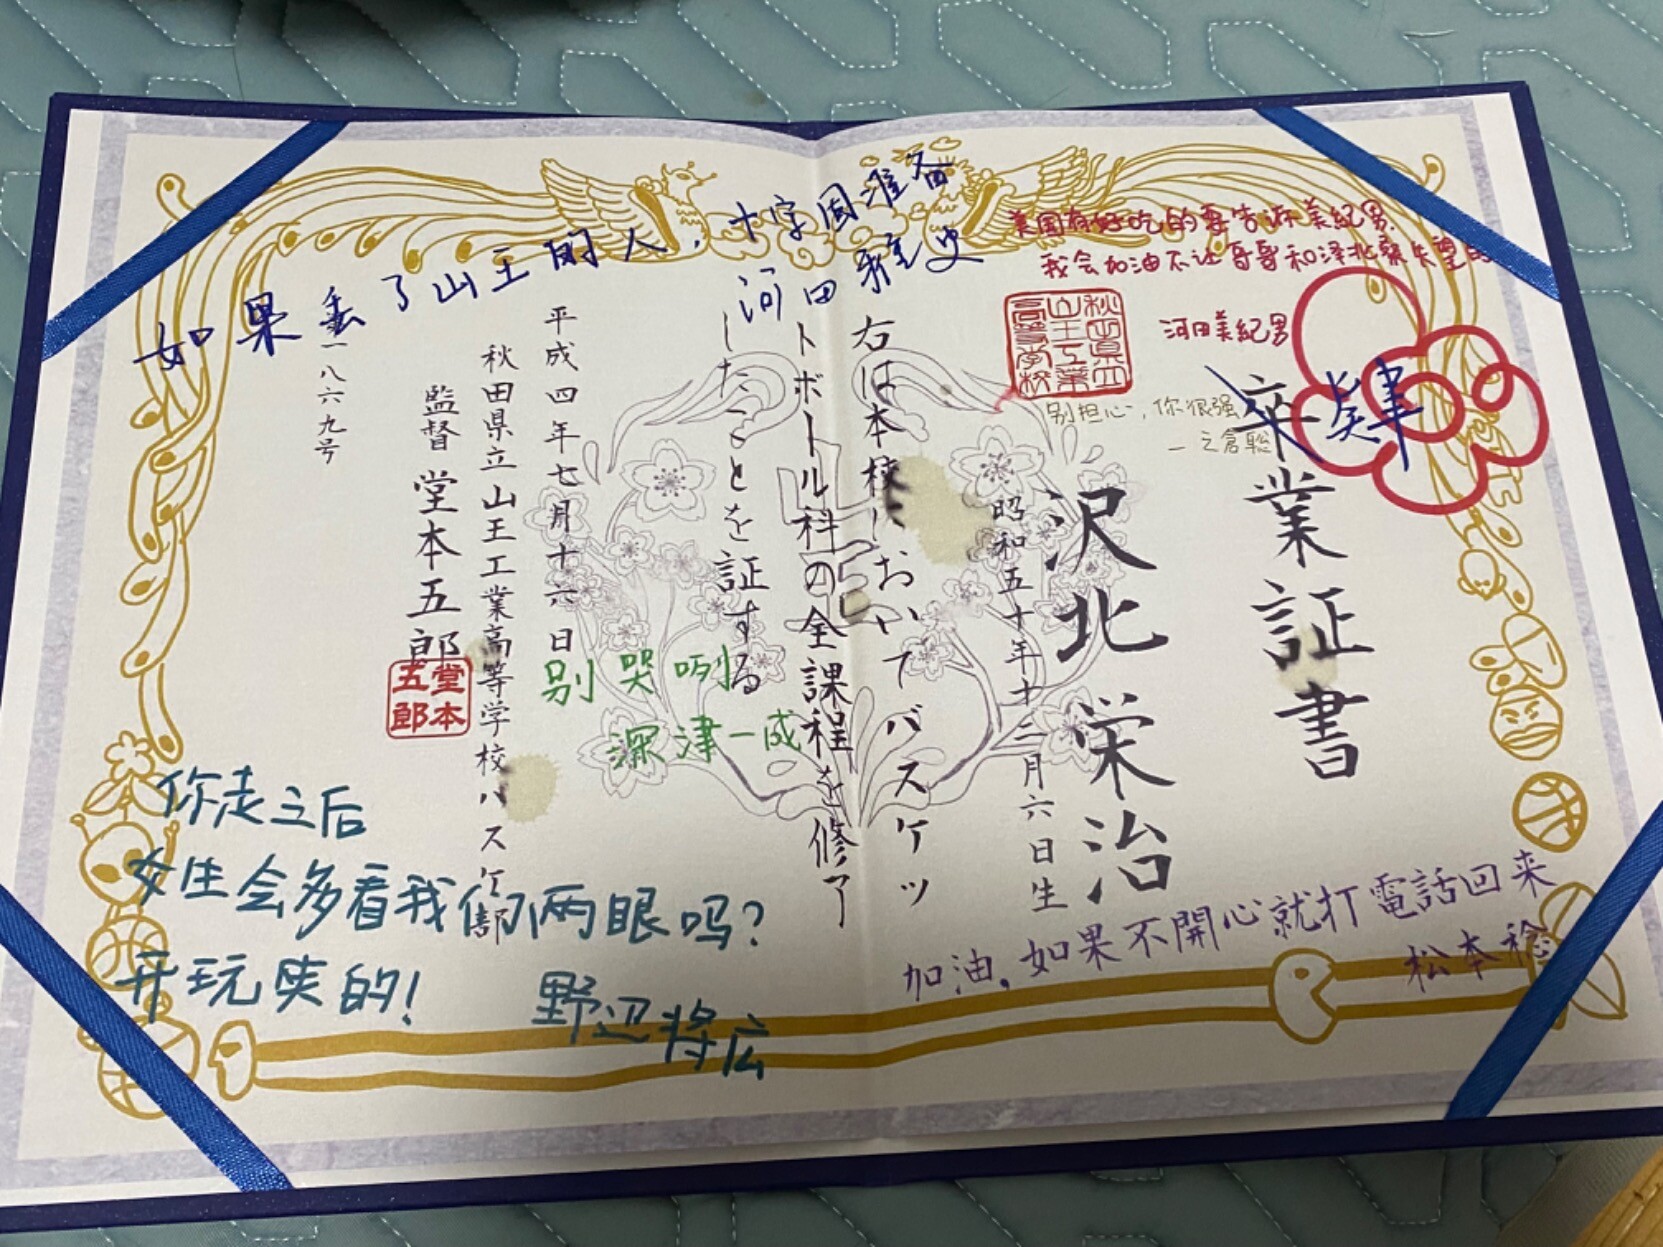 卒業証書
肄
沢北栄治
昭和五十年十二月六日生
右は本校においてバスケッ
トボール科の全課程を修了
したことを証する
平成四年七月十六日
秋田県立山王工業高等学校バスケ部
監督 堂本五郎
第一八六九号
秋田県立
山王工業
高等学校
堂本
五郎
如果丢了山王的人，十字固准备
河田雅史
美国有好吃的要告诉美紀男
我会加油不让哥哥和泽北哥失望的
河田美紀男
别担心，你很强
一之倉聡
别哭咧
深津一成
你走之后
女生会多看我们两眼吗？
开玩笑的！
野辺将広
加油。如果不開心就打電話回来
松本稔